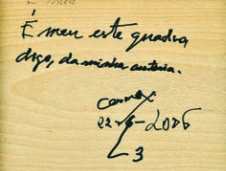 É meu este quadro
digo, da minha autoria.
22-6-2006
3